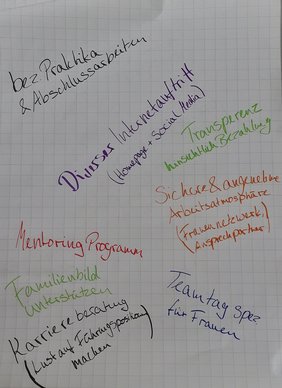 bez Praktika
& Abschlussarbeiten
Diverser Internetauftritt
(Homepage + Social Media)
Transparenz
hinsichtlich Bezahlung
Sichere & angenehme
Arbeitsatmosphäre
(Frauennetzwerk,
Ansprechpartner)
Mentoring Programm
Familienbild
unterstützen
Karriereberatung
(Lust auf Führungsposition
machen)
Teamtag spez
für Frauen